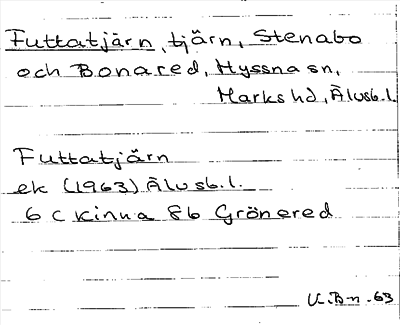 Futtatjärn, tjärn, Stenabo
och Bonared, Hyssna sn,
Marks hd, Älvsb. l.
Futtatjärn
ek (1963) Älvsb. l.
6 C Kinna 8b Grönered
U. B-n. 63